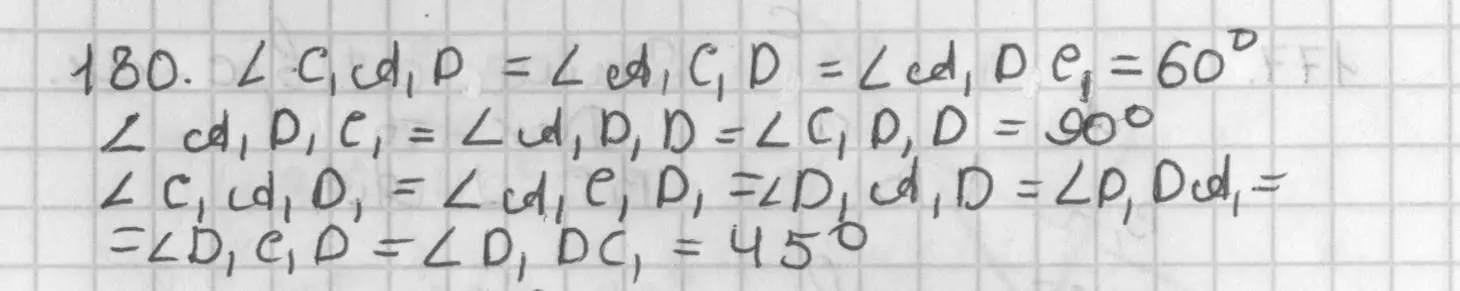 180. ∠ C₁A₁D = ∠ A₁C₁D = ∠ A₁DC₁ = 60°
∠ A₁D₁C₁ = ∠ A₁D₁D = ∠ C₁D₁D = 90°
∠ C₁A₁D₁ = ∠ A₁C₁D₁ = ∠D₁A₁D = ∠D₁DA₁ =
= ∠D₁C₁D = ∠ D₁DC₁ = 45°